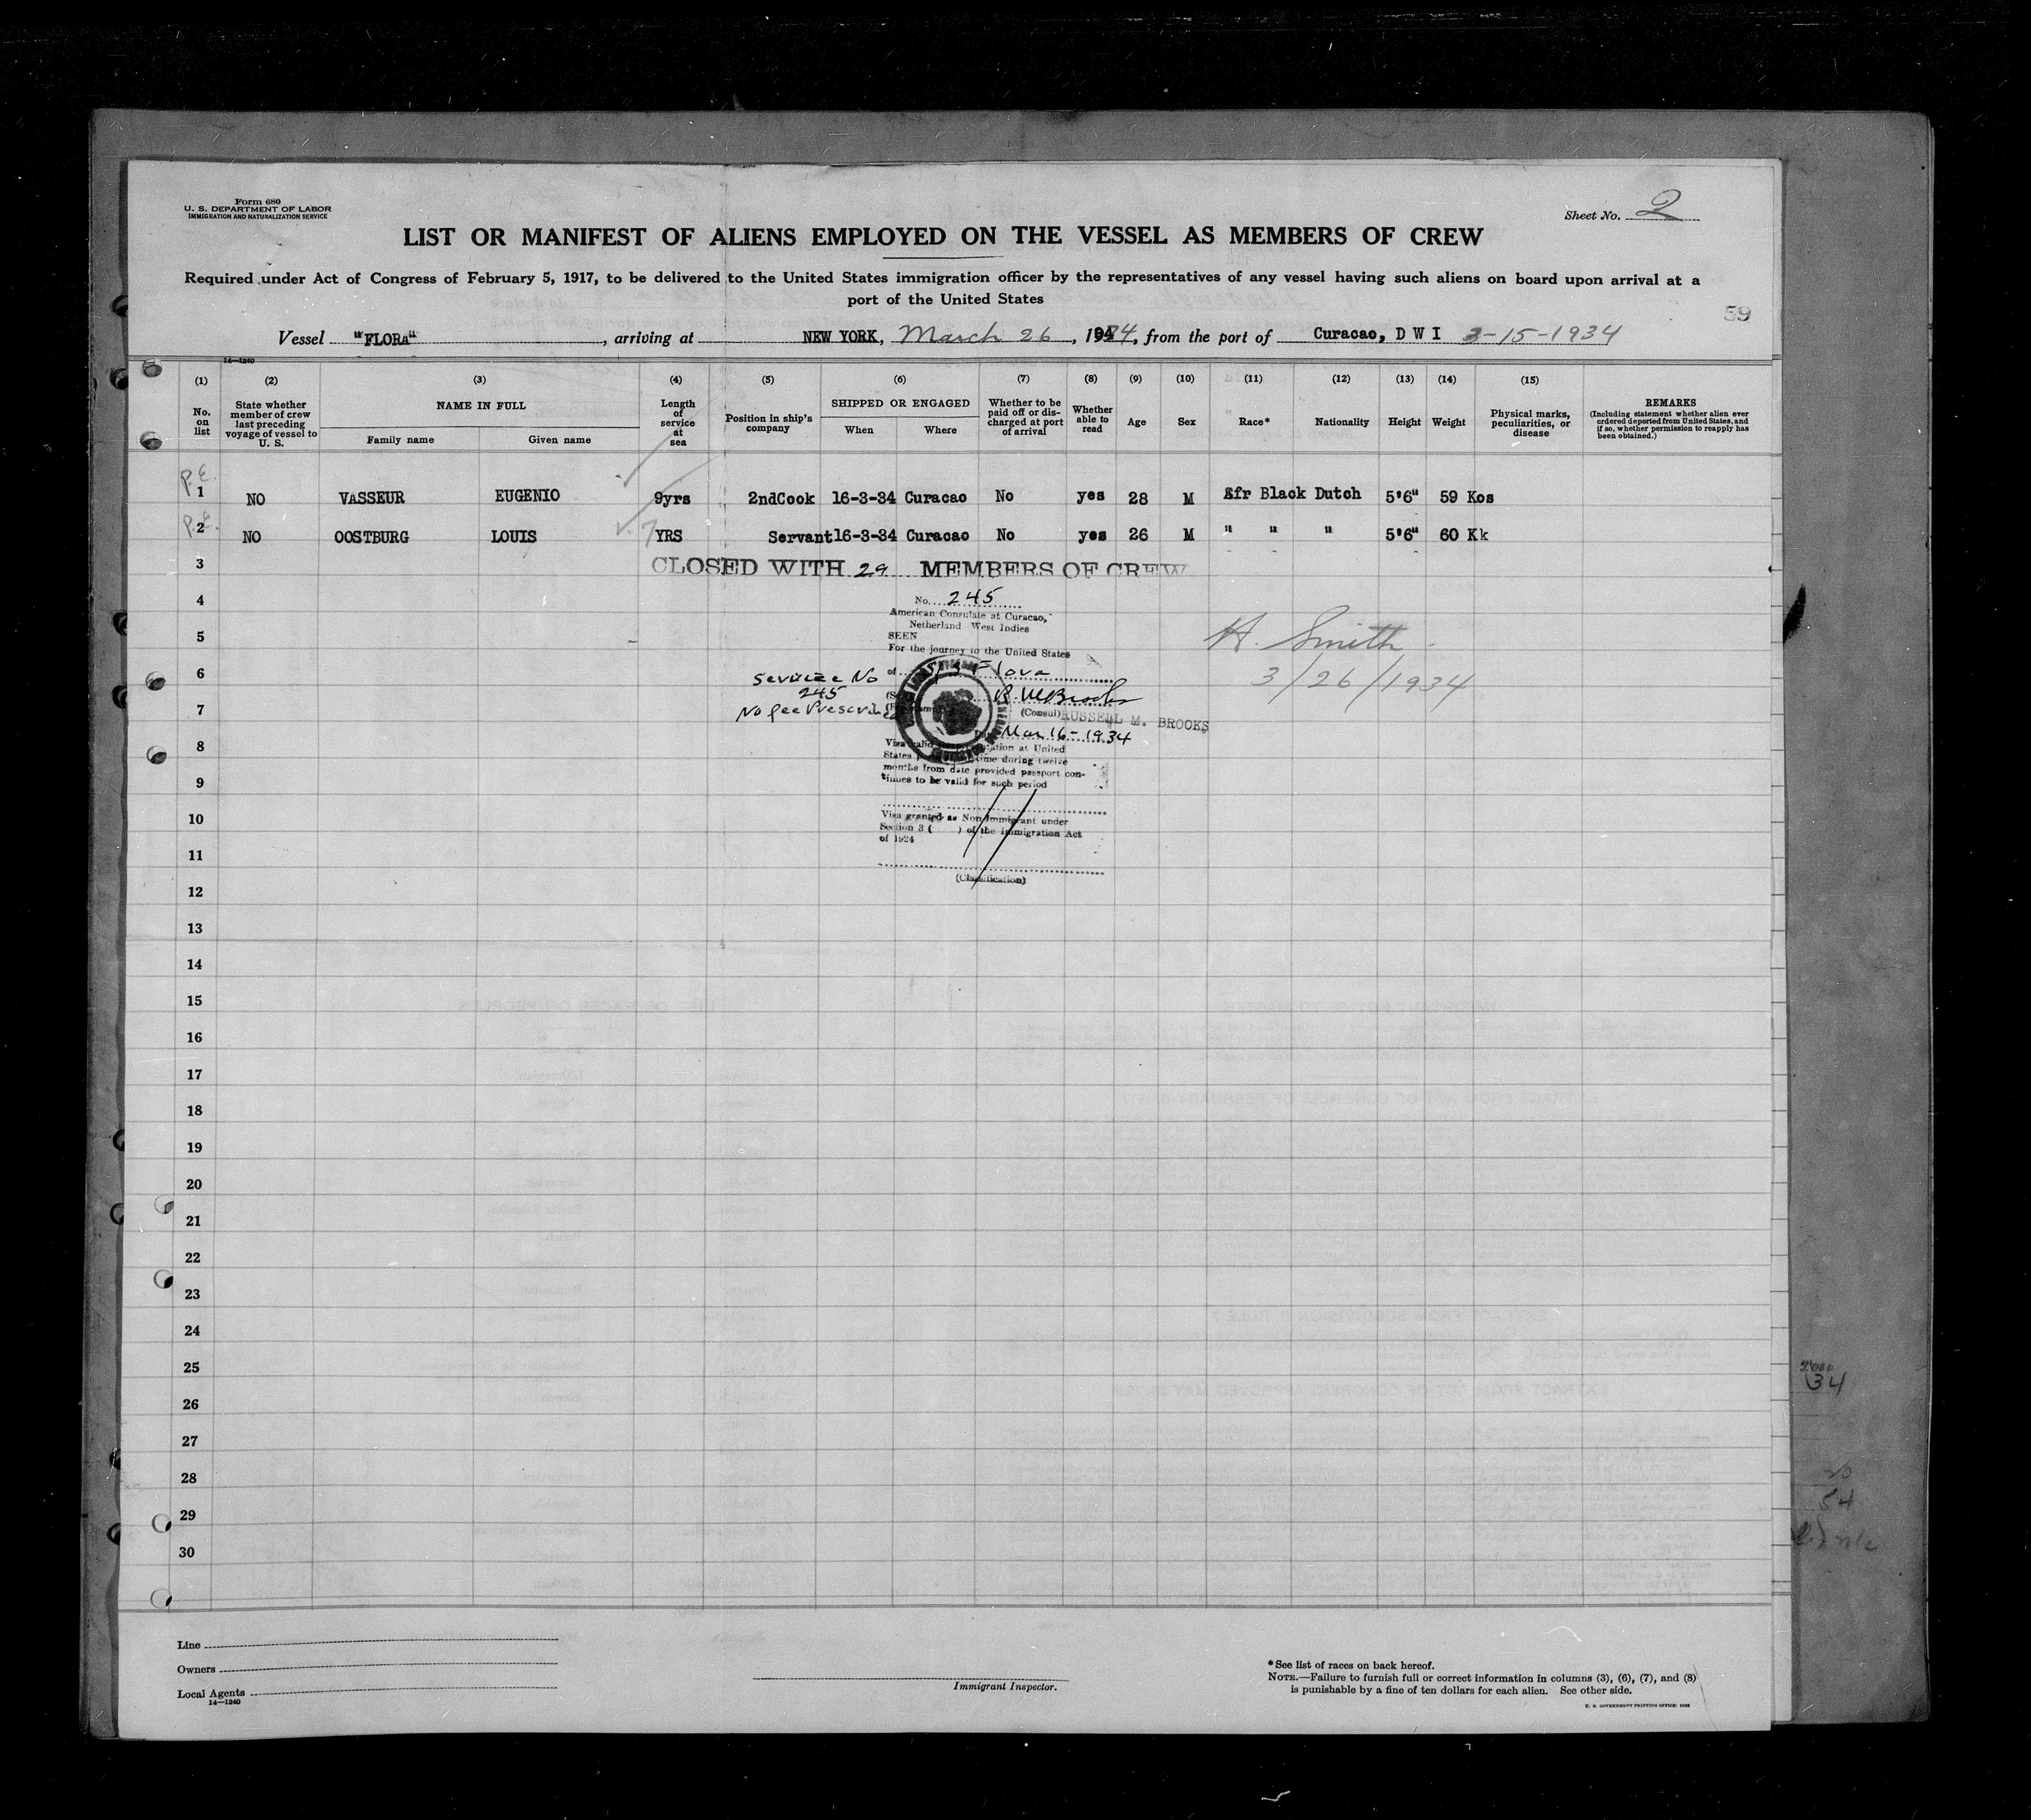 Form 680
U. S. DEPARTMENT OF LABOR
IMMIGRATION AND NATURALIZATION SERVICE
Sheet No. 2
LIST OR MANIFEST OF ALIENS EMPLOYED ON THE VESSEL AS MEMBERS OF CREW
Required under Act of Congress of February 5, 1917, to be delivered to the United States immigration officer by the representatives of any vessel having such aliens on board upon arrival at a
port of the United States
59
Vessel "FLORa", arriving at NEW YORK, March 26, 1934, from the port of Curacao, D W I 3-15-1934
14—1240
(1) (2) (3) (4) (5) (6) (7) (8) (9) (10) (11) (12) (13) (14) (15)
No. on list
State whether member of crew last preceding voyage of vessel to U. S.
NAME IN FULL
Family name
Given name
Length of service at sea
Position in ship's company
SHIPPED OR ENGAGED
When
Where
Whether to be paid off or discharged at port of arrival
Whether able to read
Age
Sex
Race*
Nationality
Height
Weight
Physical marks, peculiarities, or disease
REMARKS
(Including statement whether alien ever ordered deported from United States, and if so, whether permission to reapply has been obtained.)
P.E.
1 NO VASSEUR EUGENIO 9yrs 2ndCook 16-3-34 Curacao No yes 28 M Afr Black Dutch 5'6" 59 Kos
P.E.
2 NO OOSTBURG LOUIS 7 YRS Servant 16-3-34 Curacao No yes 26 M " " " 5'6" 60 Kk
3 CLOSED WITH 29 MEMBERS OF CREW
4 No. 245
American Consulate at Curacao,
Netherland West Indies
5 SEEN
For the journey to the United States
H. Smith
3/26/1934
6 of
Service No
245
No fee Prescribed
7 R. M Brooks
(Consul) RUSSELL M. BROOKS
Mar 16-1934
8 Visa valid for presentation at United
States ports at any time during twelve
months from date provided passport con-
9 tinues to be valid for such period
10 Visa granted as Non Immigrant under
Section 3 ( ) of the Immigration Act
of 1924
11
12 (Classification)
13
14
15
16
17
18
19
20
21
22
23
24
25
26
27
28
29
30
34
54
Line
Owners
Local Agents
14—1240
Immigrant Inspector.
*See list of races on back hereof.
NOTE.—Failure to furnish full or correct information in columns (3), (6), (7), and (8)
is punishable by a fine of ten dollars for each alien. See other side.